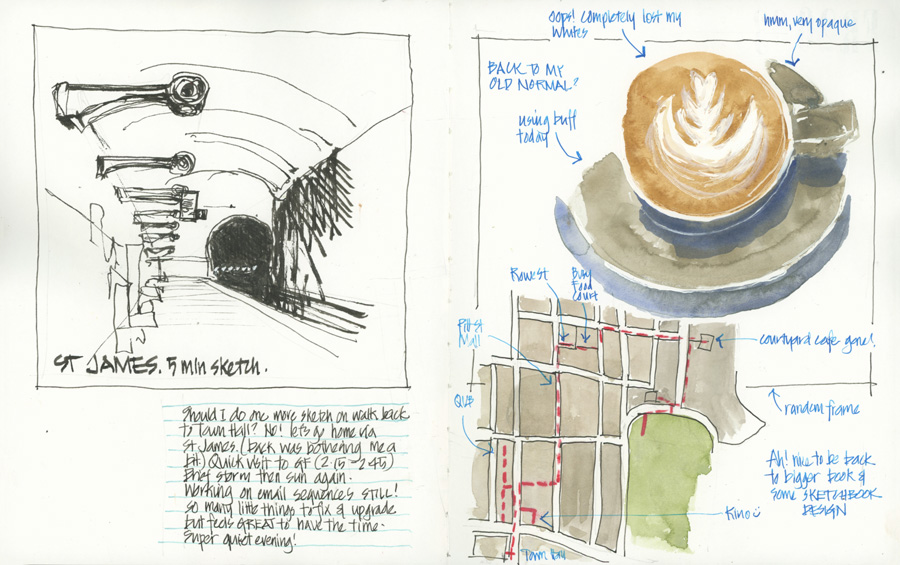 ST JAMES. 5 min sketch.
Should I do one more sketch on walk back
to Town Hall? No! let's go home via
St James. (back was bothering me a
bit) Quick visit to GF (2:15-2:45)
Brief storm then sun again.
Working on email sequences STILL!
so many little things to fix & upgrade
but feels GREAT to have the time.
Super quiet evening!
oops! completely lost my
whites
hmm, very opaque
BACK TO MY
OLD NORMAL?
using buff
today
Rowest
Busy
Food
Court
Pitt St
Mall
QVB
courtyard cafe gone!
random frame
Ah! nice to be back
to bigger book &
some SKETCHBOOK
DESIGN
Kino
Town Hall